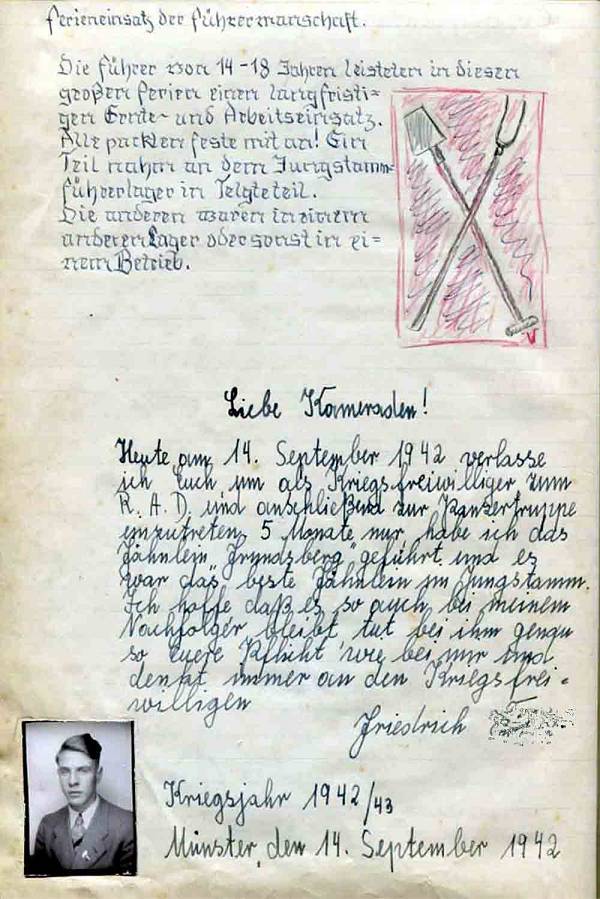 Ferieneinsatz der Führermannschaft.
Die Führer von 14-18 Jahren leisteten in diesen
großen Ferien einen langfristi=
gen Ernte- und Arbeitseinsatz.
Alle packten feste mit an! Ein
Teil nahm an dem Jungstamm=
führerlager in Telgte teil.
Die anderen waren in einem
anderen Lager oder sonst in ei=
nem Betrieb.
Liebe Kameraden!
Heute am 14. September 1942 verlasse
ich Euch um als Kriegsfreiwilliger zum
R.A.D. und anschließend zur Panzertruppe
einzutreten. 5 Monate nur habe ich das
Fähnlein "Frundsberg" geführt und es
war das beste Fähnlein im Jungstamm.
Ich hoffe daß es so auch bei meinem
Nachfolger bleibt tut bei ihm genau
so Euere Pflicht wie bei mir und
denkt immer an den Kriegsfrei-
willigen
Friedrich
Kriegsjahr 1942/43
Münster, den 14. September 1942